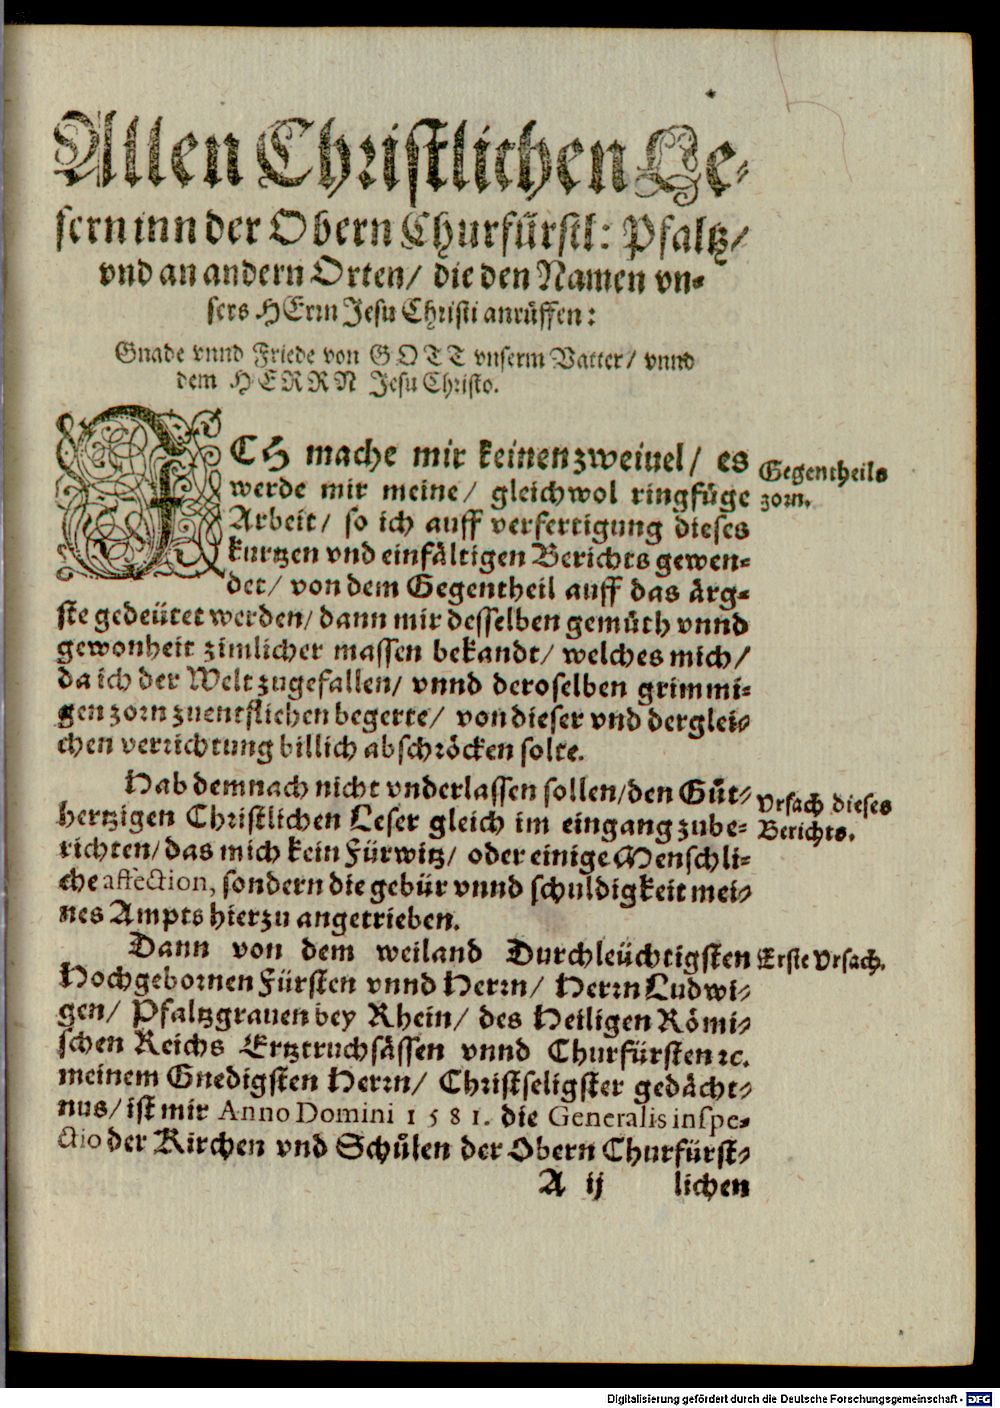 Allen Christlichen Le-
sern inn der Obern Churfürstl: Pfaltz/
vnd an andern Orten/ die den Namen vn-
sers HErrn Jesu Christi anrüffen:
Gnade vnnd Friede von GOTT vnserm Vatter/ vnnd
dem HERRN Jesu Christo.
ICH mache mir keinen zweiuel/ es
werde mir meine/ gleichwol ringfüge
Arbeit/ so ich auff verfertigung dieses
kurtzen vnd einfältigen Berichts gewen-
det/ von dem Gegentheil auff das ärg-
ste gedeütet werden/ dann mir desselben gemüth vnnd
gewonheit zimlicher massen bekandt/ welches mich/
da ich der Welt zugefallen/ vnnd deroselben grimmi-
gen zorn zuentfliehen begerte/ von dieser vnd derglei-
chen verrichtung billich abschröcken solte.
Gegentheils
zorn.
Hab demnach nicht vnderlassen sollen/den Güt-
hertzigen Christlichen Leser gleich im eingang zube-
richten/das mich kein Fürwitz/ oder einige Menschli-
che affection, sondern die gebür vnnd schuldigkeit mei-
nes Ampts hierzu angetrieben.
Vrsach dieses
Berichts.
Dann von dem weiland Durchleüchtigsten
Hochgebornen Fürsten vnnd Herrn/ Herrn Ludwi-
gen/ Pfaltzgrauen bey Rhein/ des Heiligen Römi-
schen Reichs Ertztruchsässen vnnd Churfürsten ꝛc.
meinem Gnedigsten Herrn/ Christseligster gedächt-
nus/ ist mir Anno Domini 1581. die Generalis inspe-
ctio der Kirchen vnd Schůlen der Obern Churfürst-
Erste Vrsach.
A ij lichen
Digitalisierung gefördert durch die Deutsche Forschungsgemeinschaft - DFG